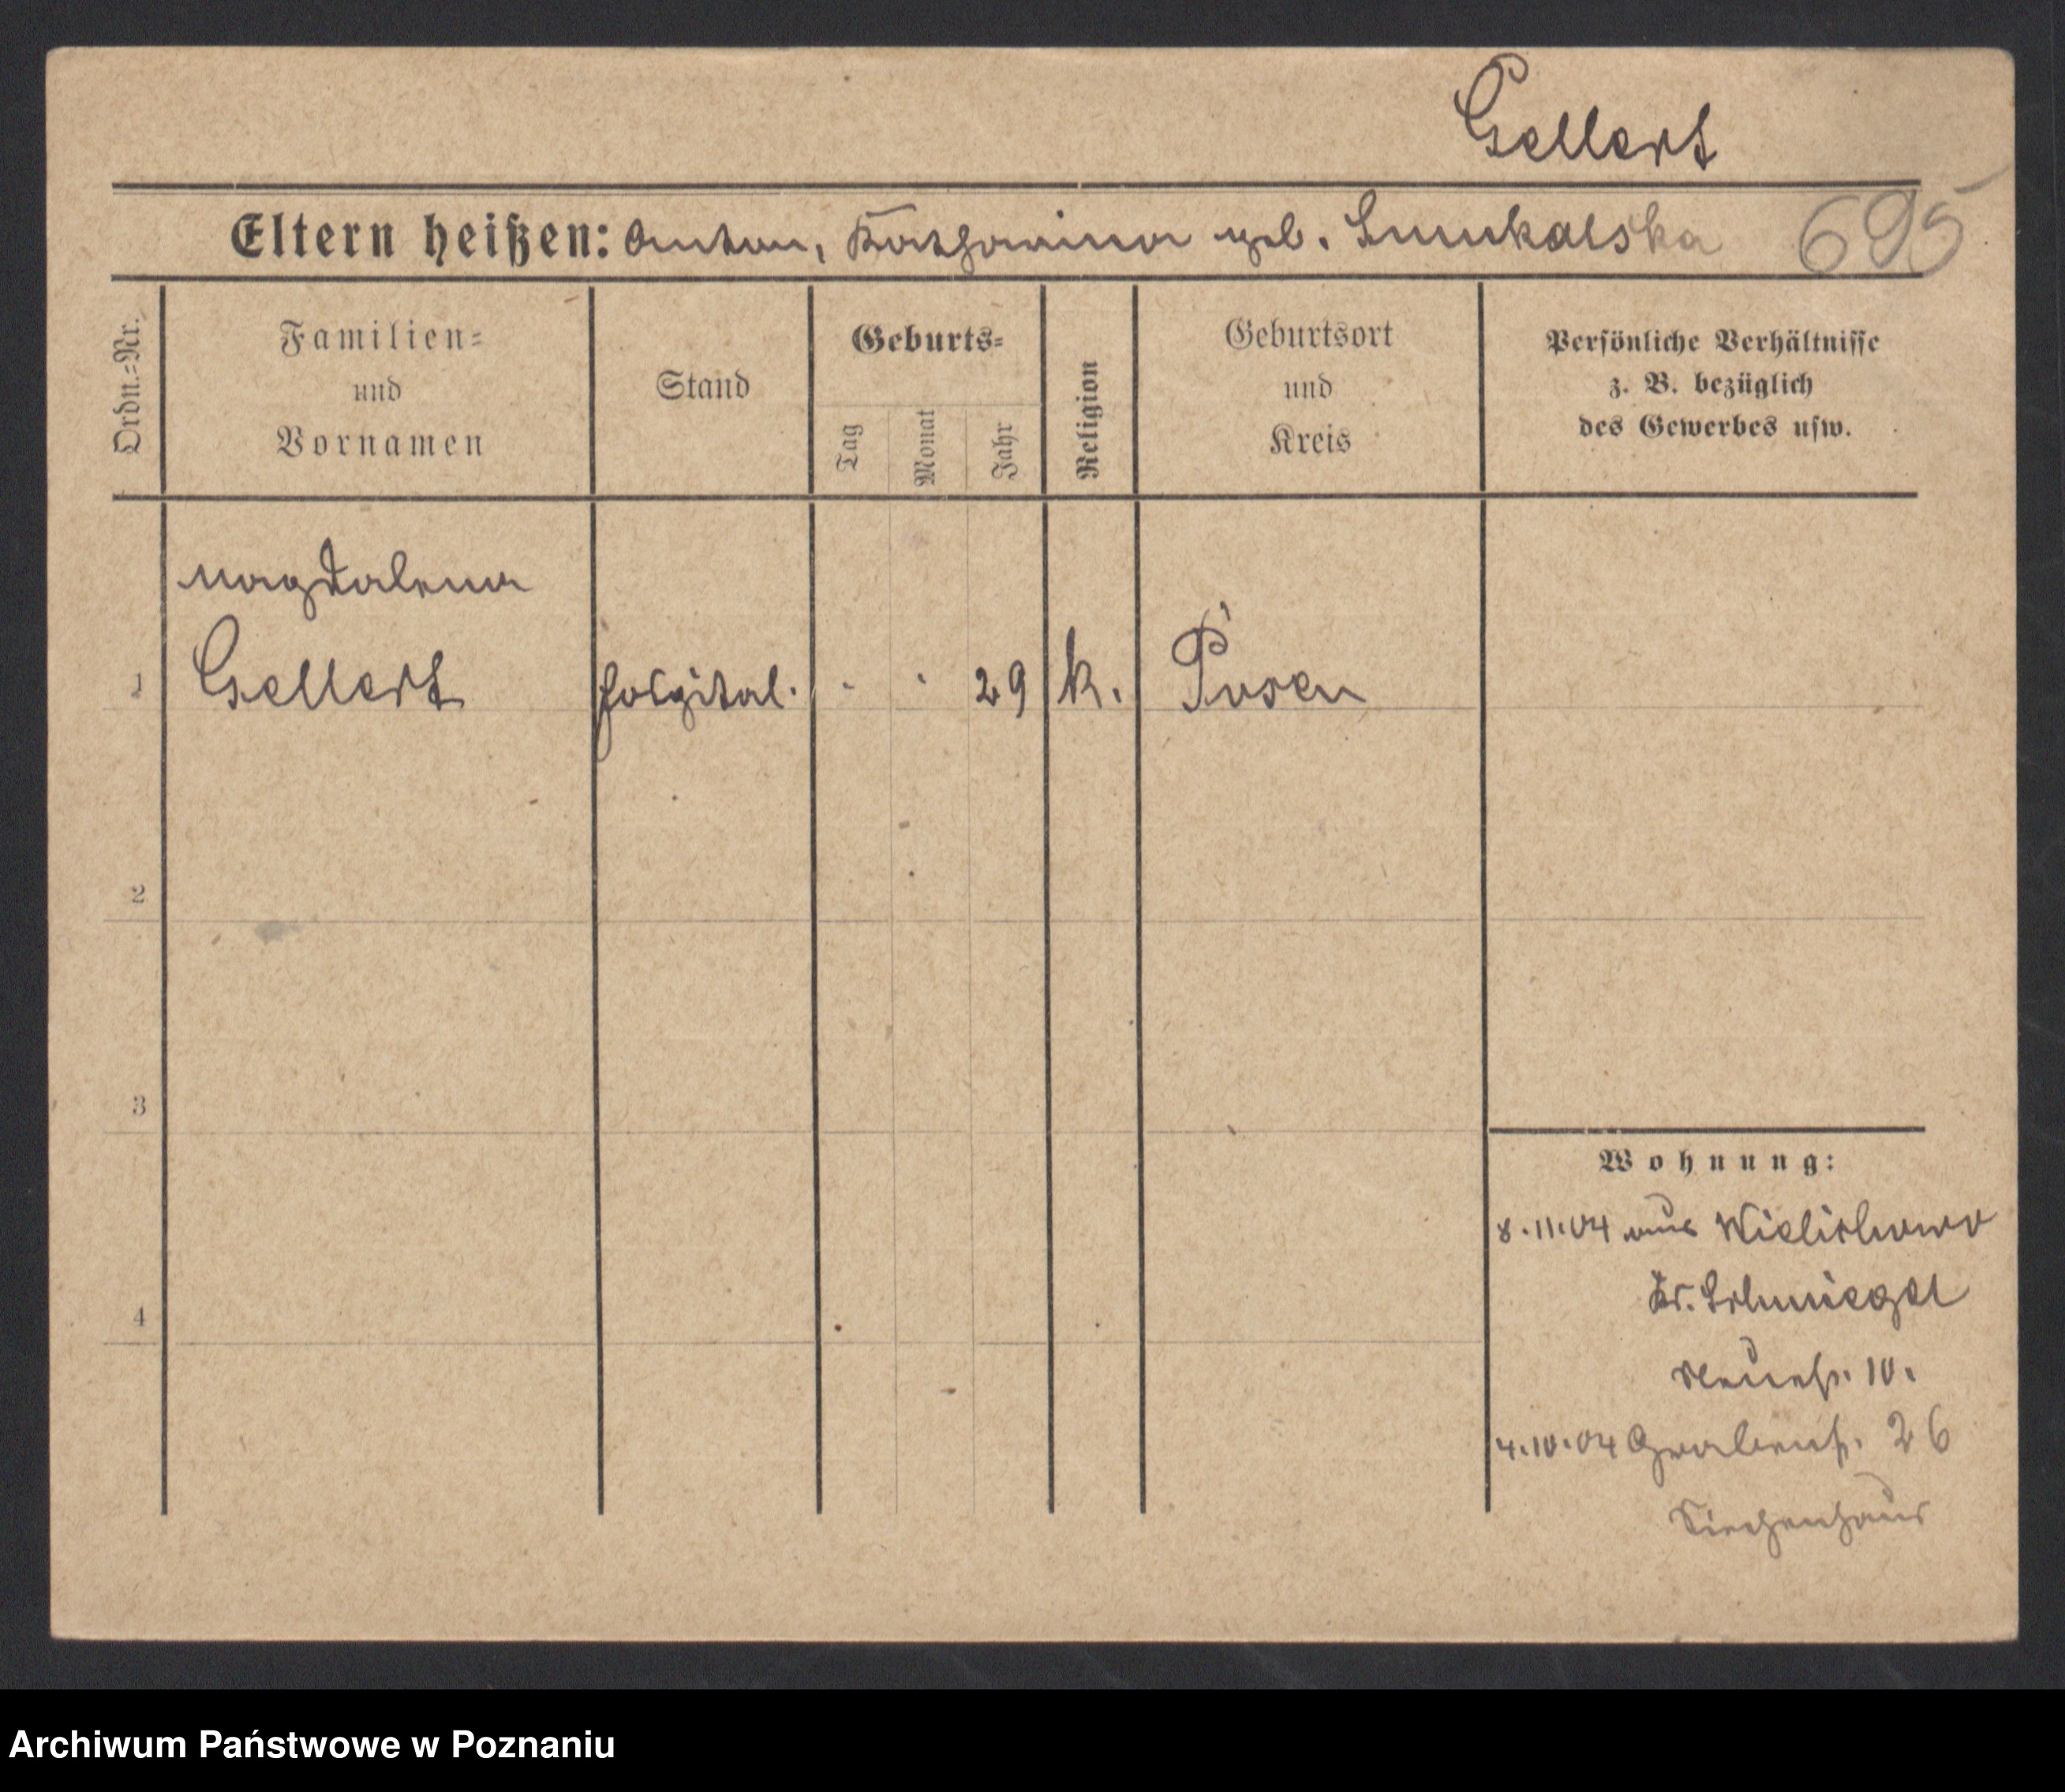 Gellert
Eltern heißen: Anton, Katharina geb. Smukalska 695
Ordn.-Nr.
Familien-
und
Vornamen
Stand
Geburts-
Tag
Monat
Jahr
Religion
Geburtsort
und
Kreis
Persönliche Verhältnisse
z. B. bezüglich
des Gewerbes usw.
Magdalena
1 Gellert Hospital. - - 29 k. Posen
2
3
4
Wohnung:
8.11.04 aus Wielichowo
Kr. Schmiegel
Neuestr. 10.
4.10.04 Grabenstr. 26
Siechenhaus
Archiwum Państwowe w Poznaniu